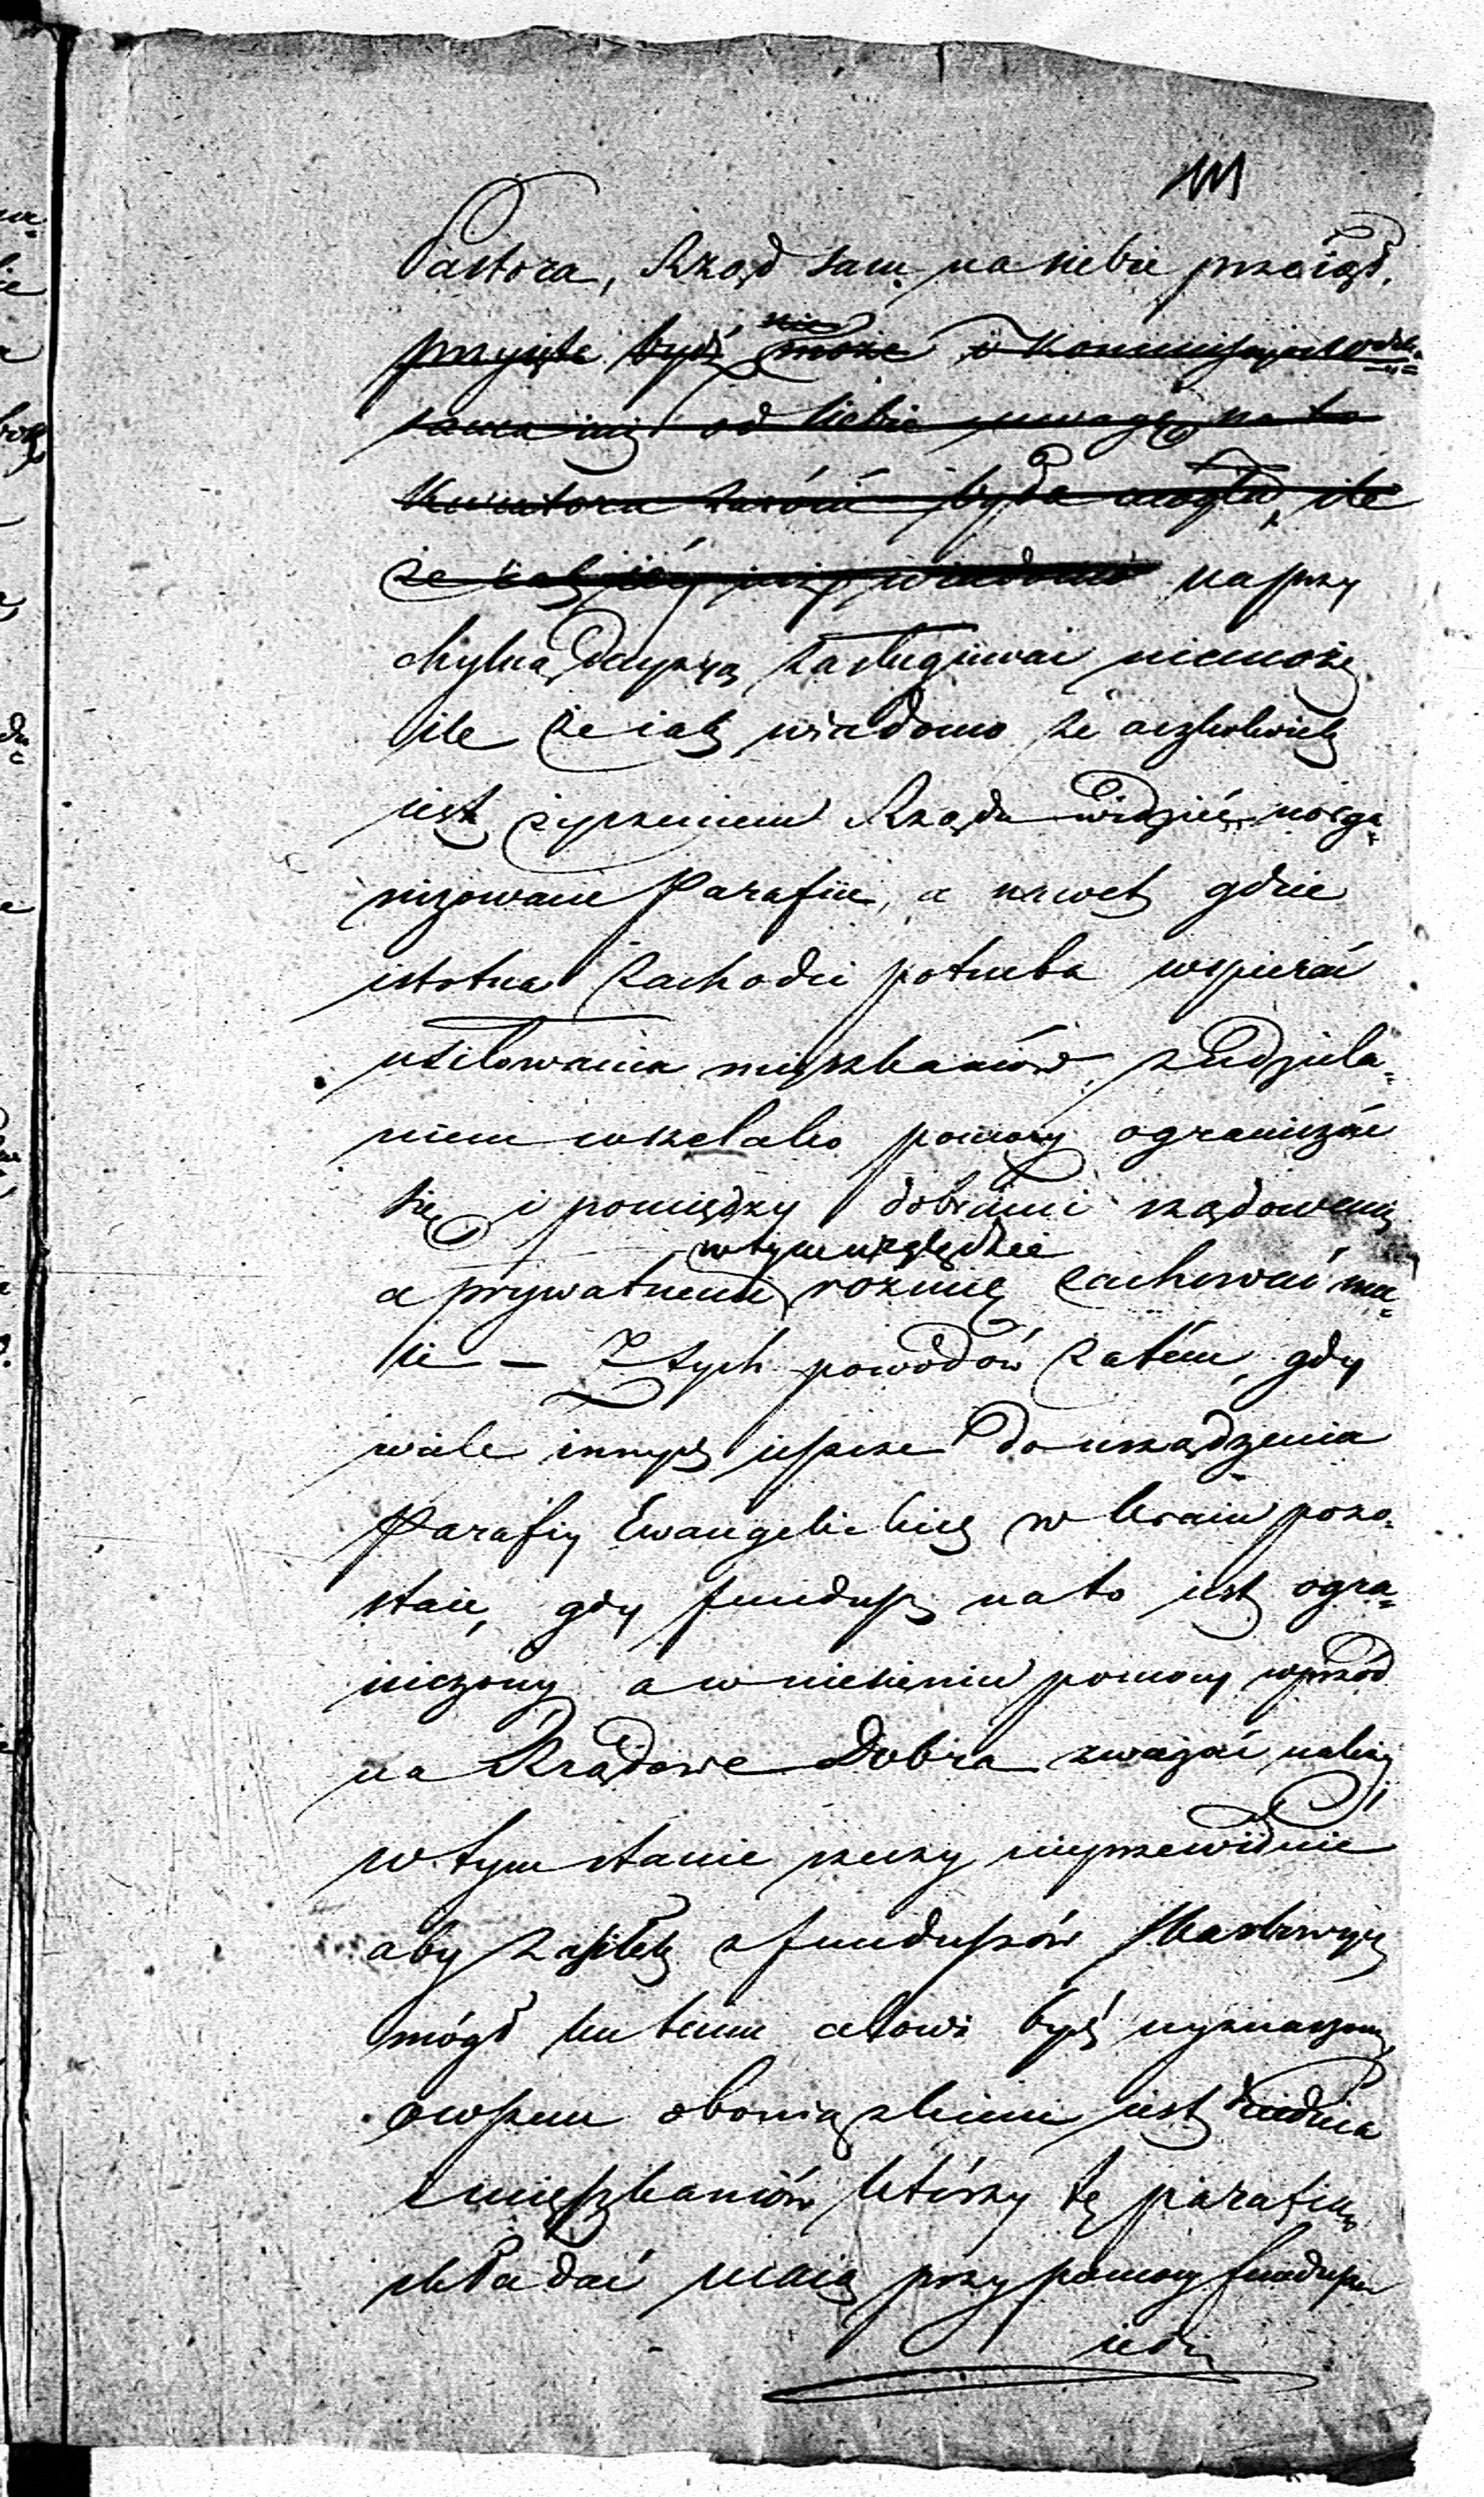 111
Pastora, Rząd sam na siebie przeiął,
przyięte być nie może i Kommissyia Woie=
sama iuż od siebie uwagę na to
Kuratora zwrócić była mogła, ile
że iak iéy iuż wiadomo na przy
chylną decyzyą zasługiwać niemoże
ile że iak wiadomo że aczkolwiek
iest życzeniem Rządu widzieć uorga=
nizowane Parafiie, a nawet gdzie
istotna zachodzi potrzeba wspierać
usiłowania mieszkańców, z udziela=
niem wszelako pomocy ograniczać
się i pomiędzy dobrami rządowemi
w tym względzie
a prywatnemi różnicę zachować mu=
si – Z tych powodów zatém, gdy
wiele innych ieszcze do urządzenia
Parafiy Ewangelickich w kraiu pozo=
staie, gdy fundusz na to iest ogra=
niczony, a w niesieniu pomocy wprzód
na Rządowe Dobra zważać należy,
w tym stanie rzeczy nieprzewidnie
aby zasiłek z funduszów skarbowych
mógł ku temu celowi być wyznaczony,
owszem obowiązkiem iest dziedzica
i mieszkańców którzy tę parafiię
składać maią przy pomocy funduszu